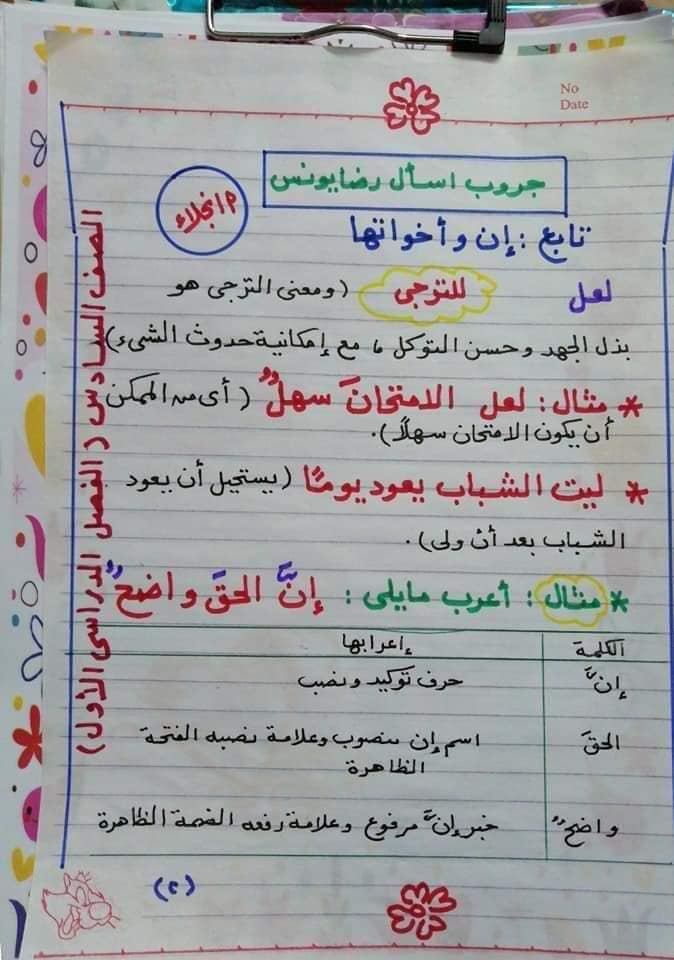 No
Date
جروب اسأل رضا يونس
م انجلاء
تابع : إن وأخواتها
لعل للترجى (ومعنى الترجى هو
بذل الجهد وحسن التوكل ، مع إمكانية حدوث الشىء)
* مثال : لعل الامتحانَ سهلٌ (أى من الممكن
أن يكون الامتحان سهلًا).
* ليت الشباب يعود يومًا (يستحيل أن يعود
الشباب بعد أن ولى).
* مثال : أعرب مايلى : إنَّ الحقَ واضحٌ
الكلمة إعرابها
إنَّ حرف توكيد ونصب
الحقَ اسم إن منصوب وعلامة نصبه الفتحة
الظاهرة
واضحٌ خبر إنَّ مرفوع وعلامة رفعه الضمة الظاهرة
(٢)
الصف السادس (الفصل الدراسى الأول)